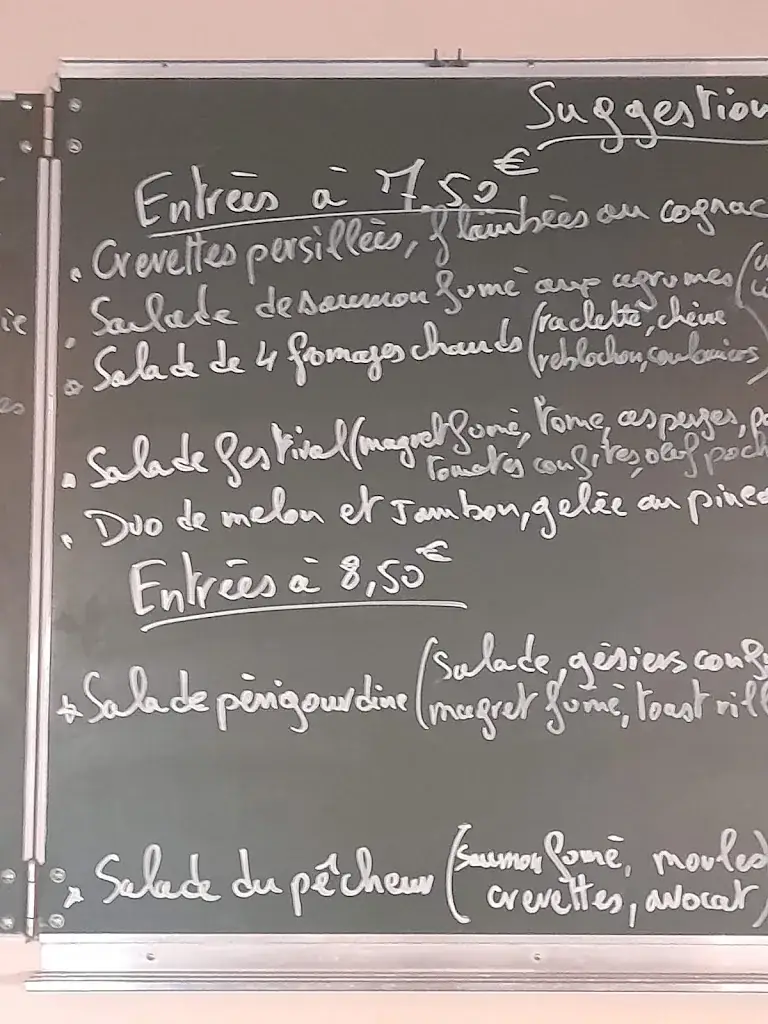 Suggestion
Entrées à 7.50€
Crevettes persillées, flambées au cognac
Salade de saumon fumé aux agrumes (
Salade de 4 fromages chauds (raclette, chèvre
reblochon,
Salade festival (magret fumé, tome, asperges,
tomates confites, œuf poch
Duo de melon et Jambon, gelée au pineau
Entrées à 8,50€
Salade périgourdine (Salade, gésiers conf
magret fumé, toast rill
Salade du pêcheur (saumon fumé, moules
crevettes, avocat)
ie
es